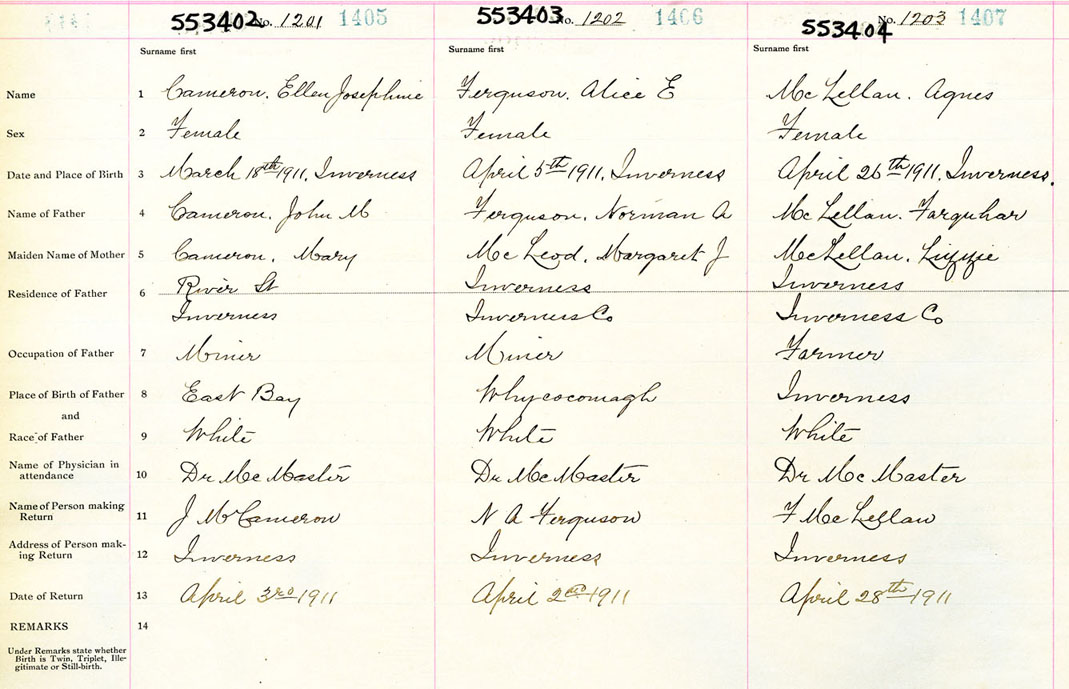 553402 No. 1201 1405 553403 No. 1202 1406 553404 No. 1203 1407
Surname first Surname first Surname first
Name 1 Cameron, Ellen Josephine Ferguson, Alice E McLellan, Agnes
Sex 2 Female Female Female
Date and Place of Birth 3 March 18th 1911, Inverness April 5th 1911, Inverness April 26th 1911, Inverness.
Name of Father 4 Cameron, John M Ferguson, Norman A McLellan, Farquhar
Maiden Name of Mother 5 Cameron, Mary McLeod, Margaret J McLellan, Lizzie
Residence of Father 6 River St Inverness Inverness
Inverness Inverness Co Inverness Co
Occupation of Father 7 Miner Miner Farmer
Place of Birth of Father 8 East Bay Whycocomagh Inverness
and
Race of Father 9 White White White
Name of Physician in
attendance 10 Dr McMaster Dr McMaster Dr McMaster
Name of Person making
Return 11 J M Cameron N A Ferguson F McLellan
Address of Person mak-
ing Return 12 Inverness Inverness Inverness
Date of Return 13 April 3rd 1911 April 2nd 1911 April 28th 1911
REMARKS 14
Under Remarks state whether
Birth is Twin, Triplet, Ille-
gitimate or Still-birth.